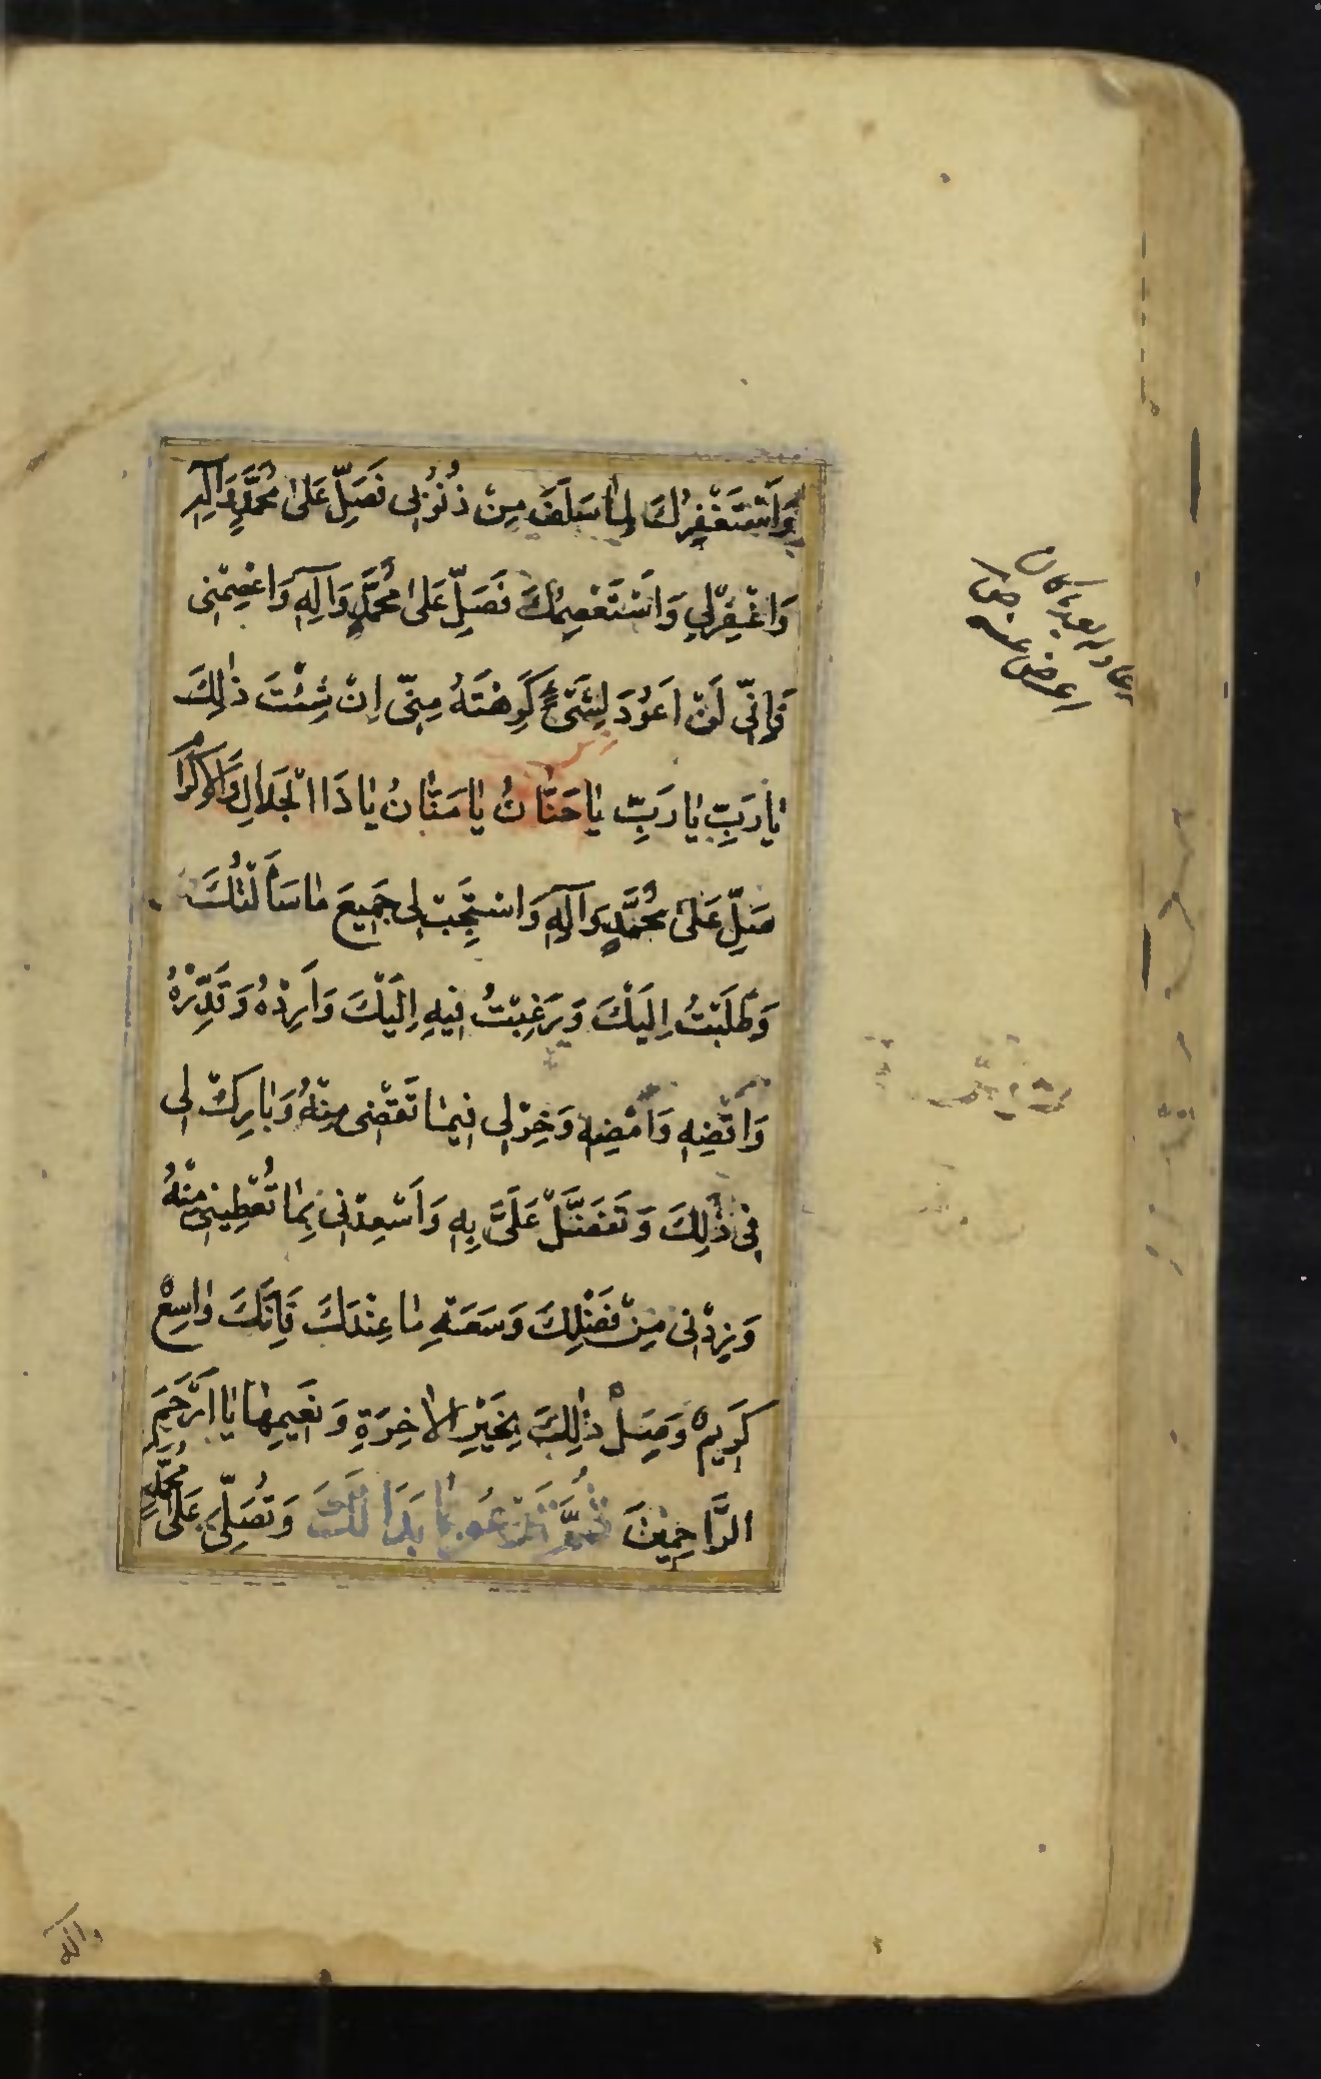 وَاَسْتَغْفِرُكَ لِمٰا سَلَفَ مِنْ ذُنُوْبِى فَصَلِّ عَلىٰ مُحَمَّدٍ وَآلِهِ
وَاغْفِرْلِي وَاَسْتَعْصِمُكَ فَصَلِّ عَلىٰ مُحَمَّدٍ وَآلِهِ وَاعْصِمْنِى
فَاِنِّى لَنْ اَعُوْدَ لِشَىْءٍ كَرِهْتَهُ مِنِّى اِنْ شِئْتَ ذٰلِكَ
يٰا رَبِّ يٰا رَبِّ يٰا حَنّٰانُ يٰا مَنّٰانُ يٰا ذَا الْجَلاٰلِ وَالْاِكْرٰامِ
صَلِّ عَلىٰ مُحَمَّدٍ وَآلِهِ وَاسْتَجِبْ لِى جَمِيعَ مٰا سَأَلْتُكَ
وَطَلَبْتُ اِلَيْكَ وَرَغِبْتُ فِيهِ اِلَيْكَ وَاَرِدْهُ وَقَدِّرْهُ
وَاقْضِهِ وَاَمْضِهِ وَخِرْلِى فِيمٰا تَقْضِى مِنْهُ وَبٰارِكْ لِى
فِى ذٰلِكَ وَتَفَضَّلْ عَلَىَّ بِهِ وَاَسْعِدْنِى بِمٰا تُعْطِينِى مِنْهُ
وَزِدْنِى مِنْ فَضْلِكَ وَسَعَةِ مٰا عِنْدَكَ فَاِنَّكَ وٰاسِعٌ
كَرِيمٌ وَصِلْ ذٰلِكَ بِخَيْرِ الْاٰخِرَةِ وَنَعِيمِهٰا يٰا اَرْحَمَ
الرَّاحِمِيْنَ ثُمَّ تَدْعُو بِمٰا بَدَا لَكَ وَتُصَلِّى عَلىٰ مُحَمَّدٍ
وآله